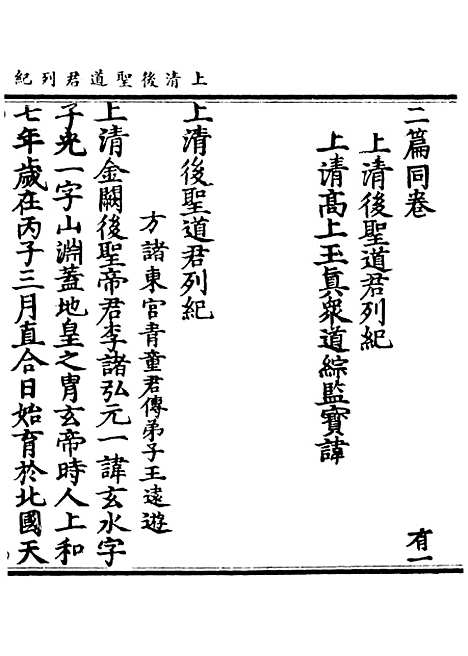 上清後聖道君列紀
二篇同卷 有一
上清後聖道君列紀
上清高上玉真眾道綜監寶諱
上清後聖道君列紀
方諸東宮青童君傳弟子王遠遊
上清金闕後聖帝君李諸弘元一諱玄水字
子光一字山淵蓋地皇之胄玄帝時人上和
七年歲在丙子三月直合日始育於北國天